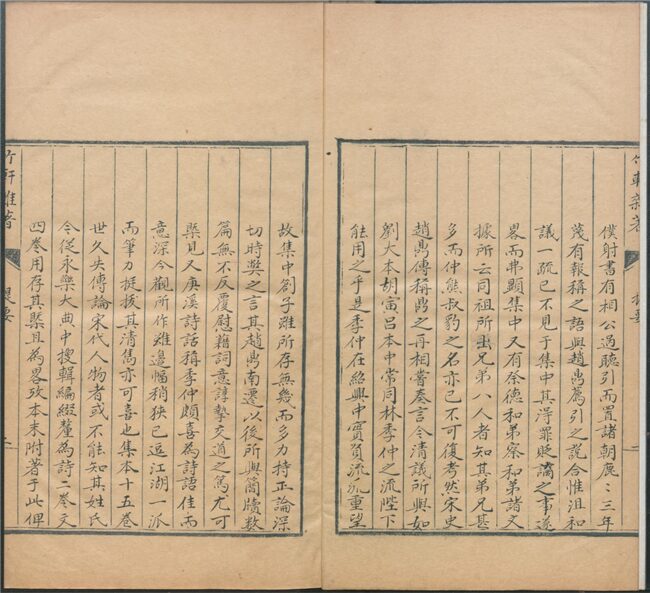 竹軒雜著
提要
二
僕射書有相公過聽引而置諸朝廷三年
蔑有報稱之語與趙鼎薦引之說合惟沮和
議一疏已不見于集中其得罪貶謫之事遂
畧而弗顯集中又有祭德和弟祭和弟諸文
據所云同祖所出兄弟八人者知其弟兄甚
多而仲熊叔豹之名亦已不可復考然宋史
趙鼎傳稱鼎之再相嘗奏言今清議所與如
劉大本胡寅呂本中常同林季仲之流陛下
能用之乎是季仲在紹興中實負清流重望
故集中劄子雖所存無幾而多力持正論深
切時獘之言其趙鼎南遷以後所與簡牘數
篇無不反覆慰藉詞意諄摯交道之篤尤可
槩見又庚溪詩話稱季仲頗喜為詩語佳而
意深今觀所作雖邊幅稍狹已逗江湖一派
而筆力挺拔其清雋亦可喜也集本十五卷
世久失傳論宋代人物者或不能知其姓氏
今從永樂大典中搜輯編綴釐為詩二卷文
四卷用存其槩且為畧攷本末附著于此俾
竹軒雜著
提要
二